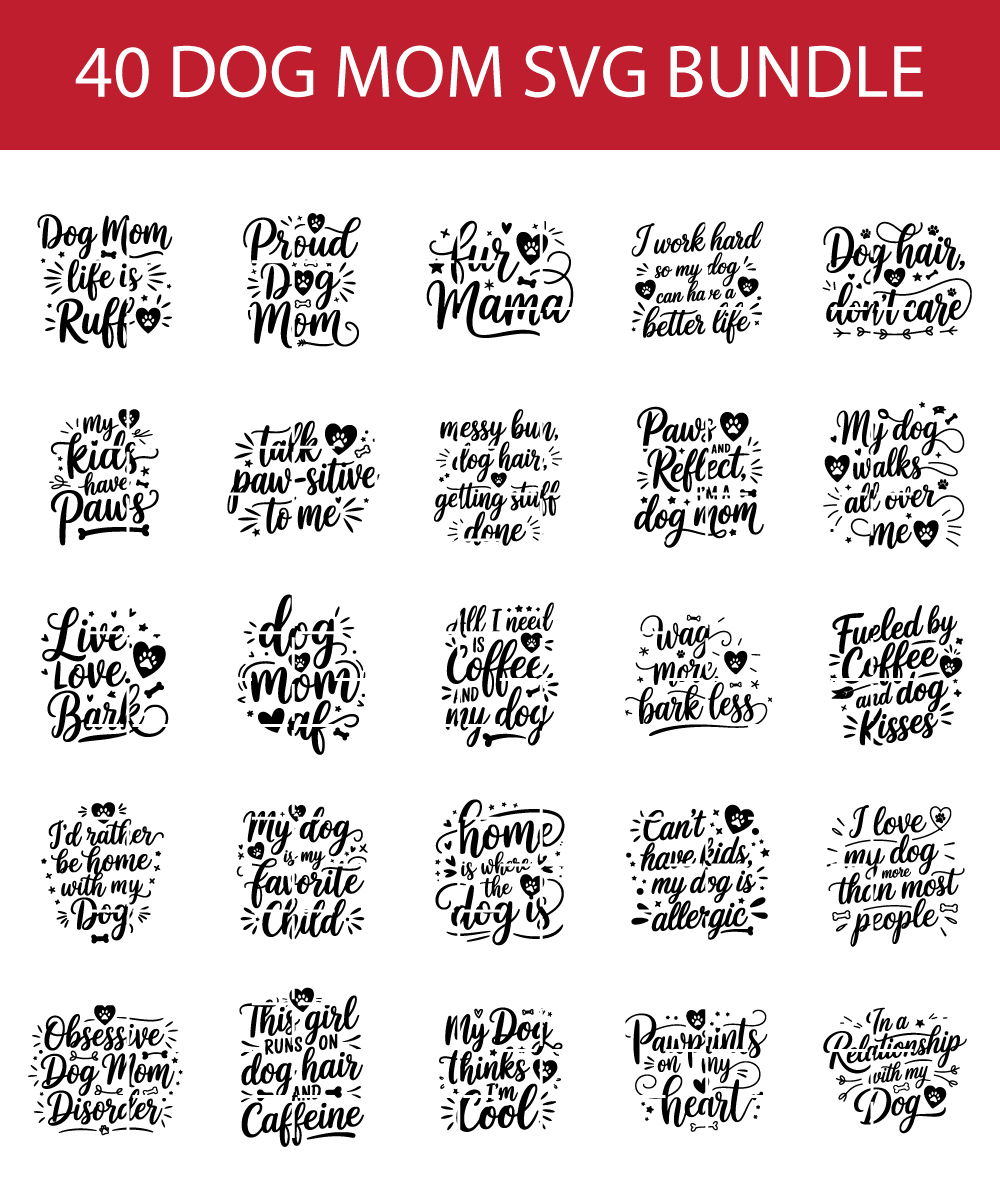 40 DOG MOM SVG BUNDLE
Dog Mom
life is
Ruff
Proud
Dog
Mom
fur
Mama
I work hard
so my dog
can have a
better life
Dog hair,
don't care
my
kids
have
Paws
talk
paw-sitive
to me
messy bun,
dog hair,
getting stuff
done
Paws
AND
Reflect,
I'M A
dog mom
My dog
walks
all over
me
Live
Love
Bark
dog
mom
af
All I need
IS
Coffee
AND
my dog
Wag
more
bark less
Fueled by
Coffee
and dog
Kisses
I'd rather
be home
with my
Dog
My dog
is my
favorite
Child
home
is where
the
dog is
Can't
have kids,
my dog is
allergic
I love
my dog
more
than most
people
Obsessive
Dog Mom
Disorder
This girl
RUNS ON
dog hair
AND
Caffeine
My Dog
thinks
I'm
Cool
Pawprints
on my
heart
In a
Relationship
with my
Dog